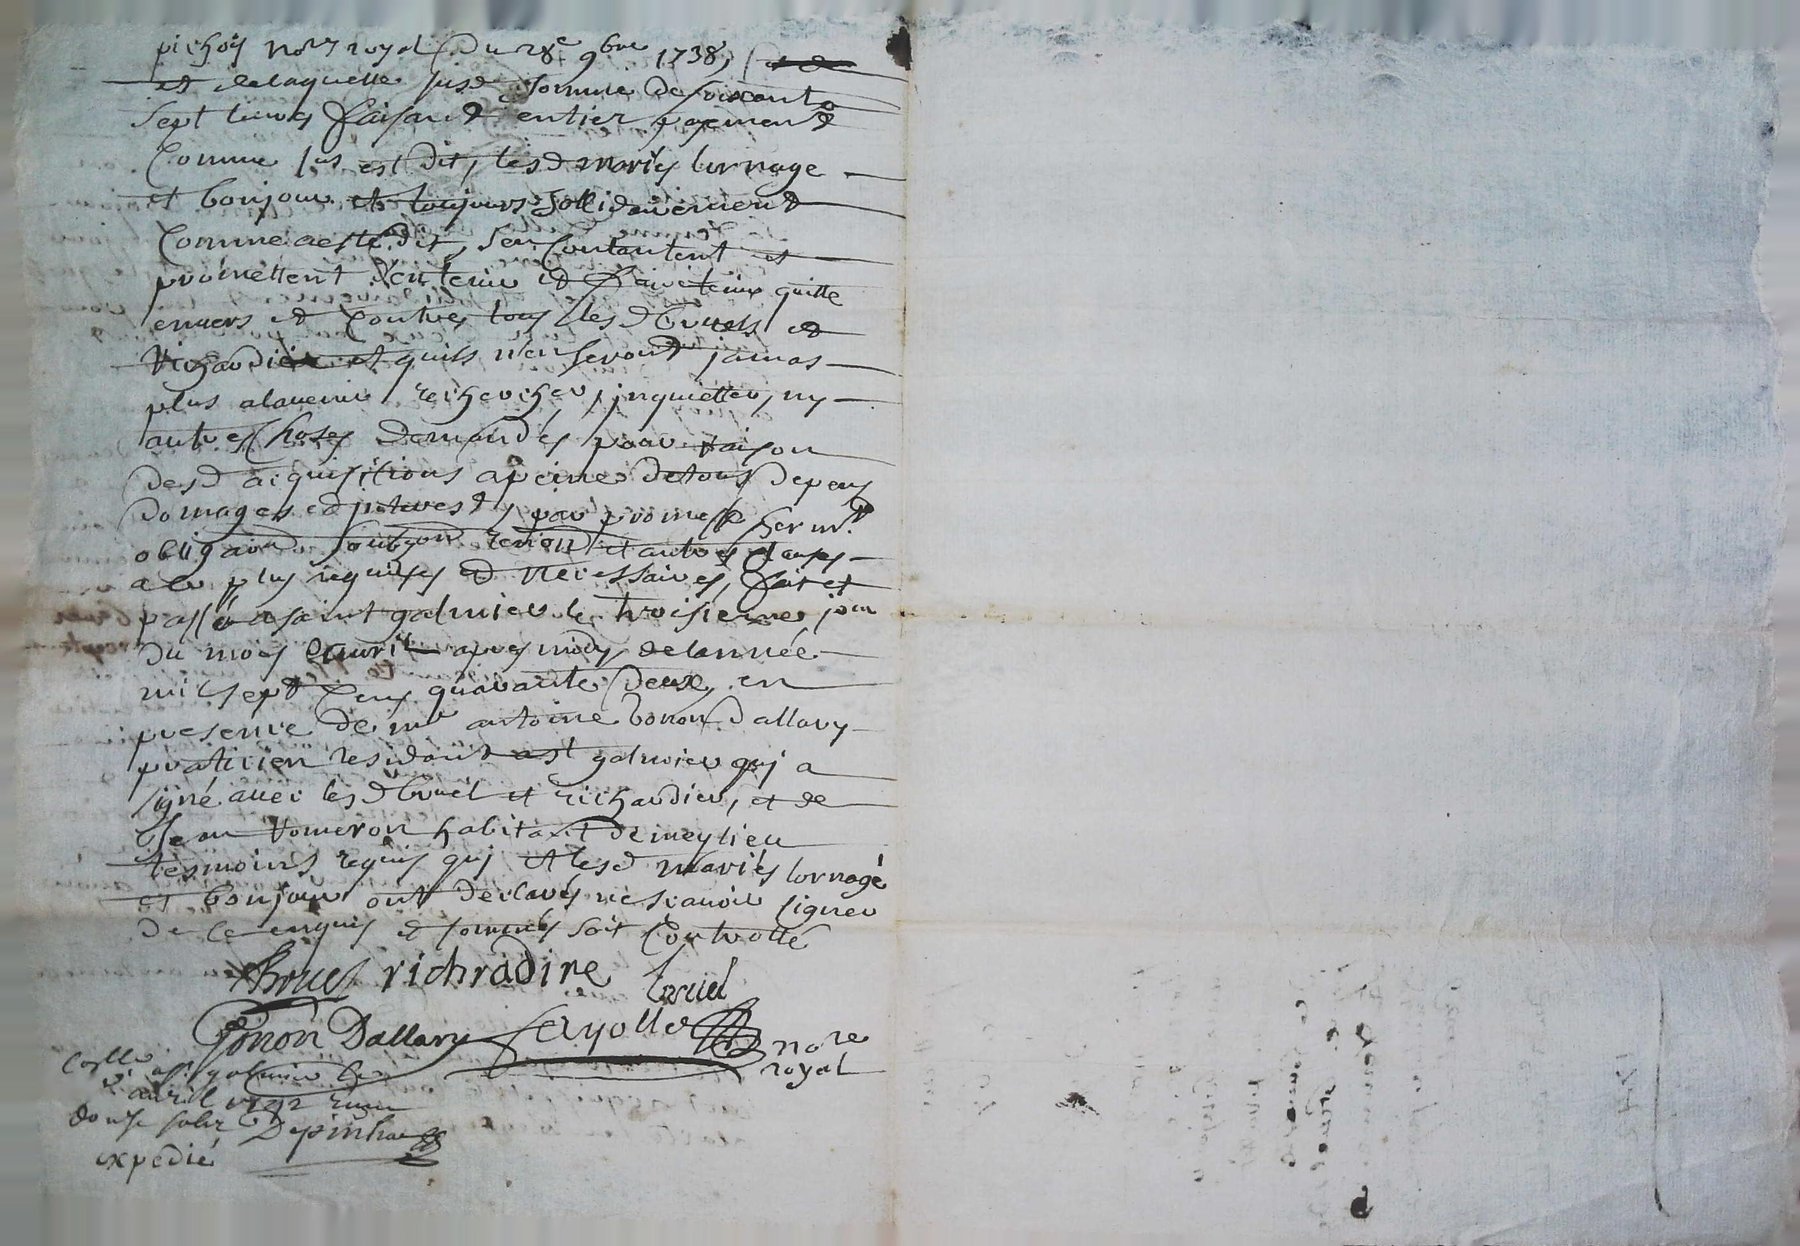 pichon nore royal du 28e 9bre 1738,
et delaquelle susd somme de soixante
sept livres faisant entier payement
comme sus est dit, lesd mariés lornage
et bonjour et toujours sollidairement
comme a esté dit, sen contantent et
promettent den tenir et faire tenir quitte
envers et contre tous lesd bruel et
richardier et quils nen seront jamas
plus alavenir recherchés, inquiettes, ny
autres choses demandés pour raison
desd acquisitions a peine de tous depens
domages et interest, par promesse serm.t
obligaon soubson renon et autres clauses
a ce plus requises et necessaires, fait et
passé a saint galmier le troisieme jour
du mois davril apres midy de lannée
mil sept cens quarante deux, en
presence de mr antoine bonon Dallary
praticien residant a st galmier qui a
signé avec lesd bruel et richardier, et de
Jean romeron habitant de meylieu
tesmoins requis qui et lesd mariés lornage
et bonjour ont declarés ne scavoir signer
de ce enquis et sommés soit controllé
Bruel richradire bruel
Bonon Dallary fayolle nore
royal
Collé a st galmier le
avril 1742 receu
douze sols Depinhac
expedié